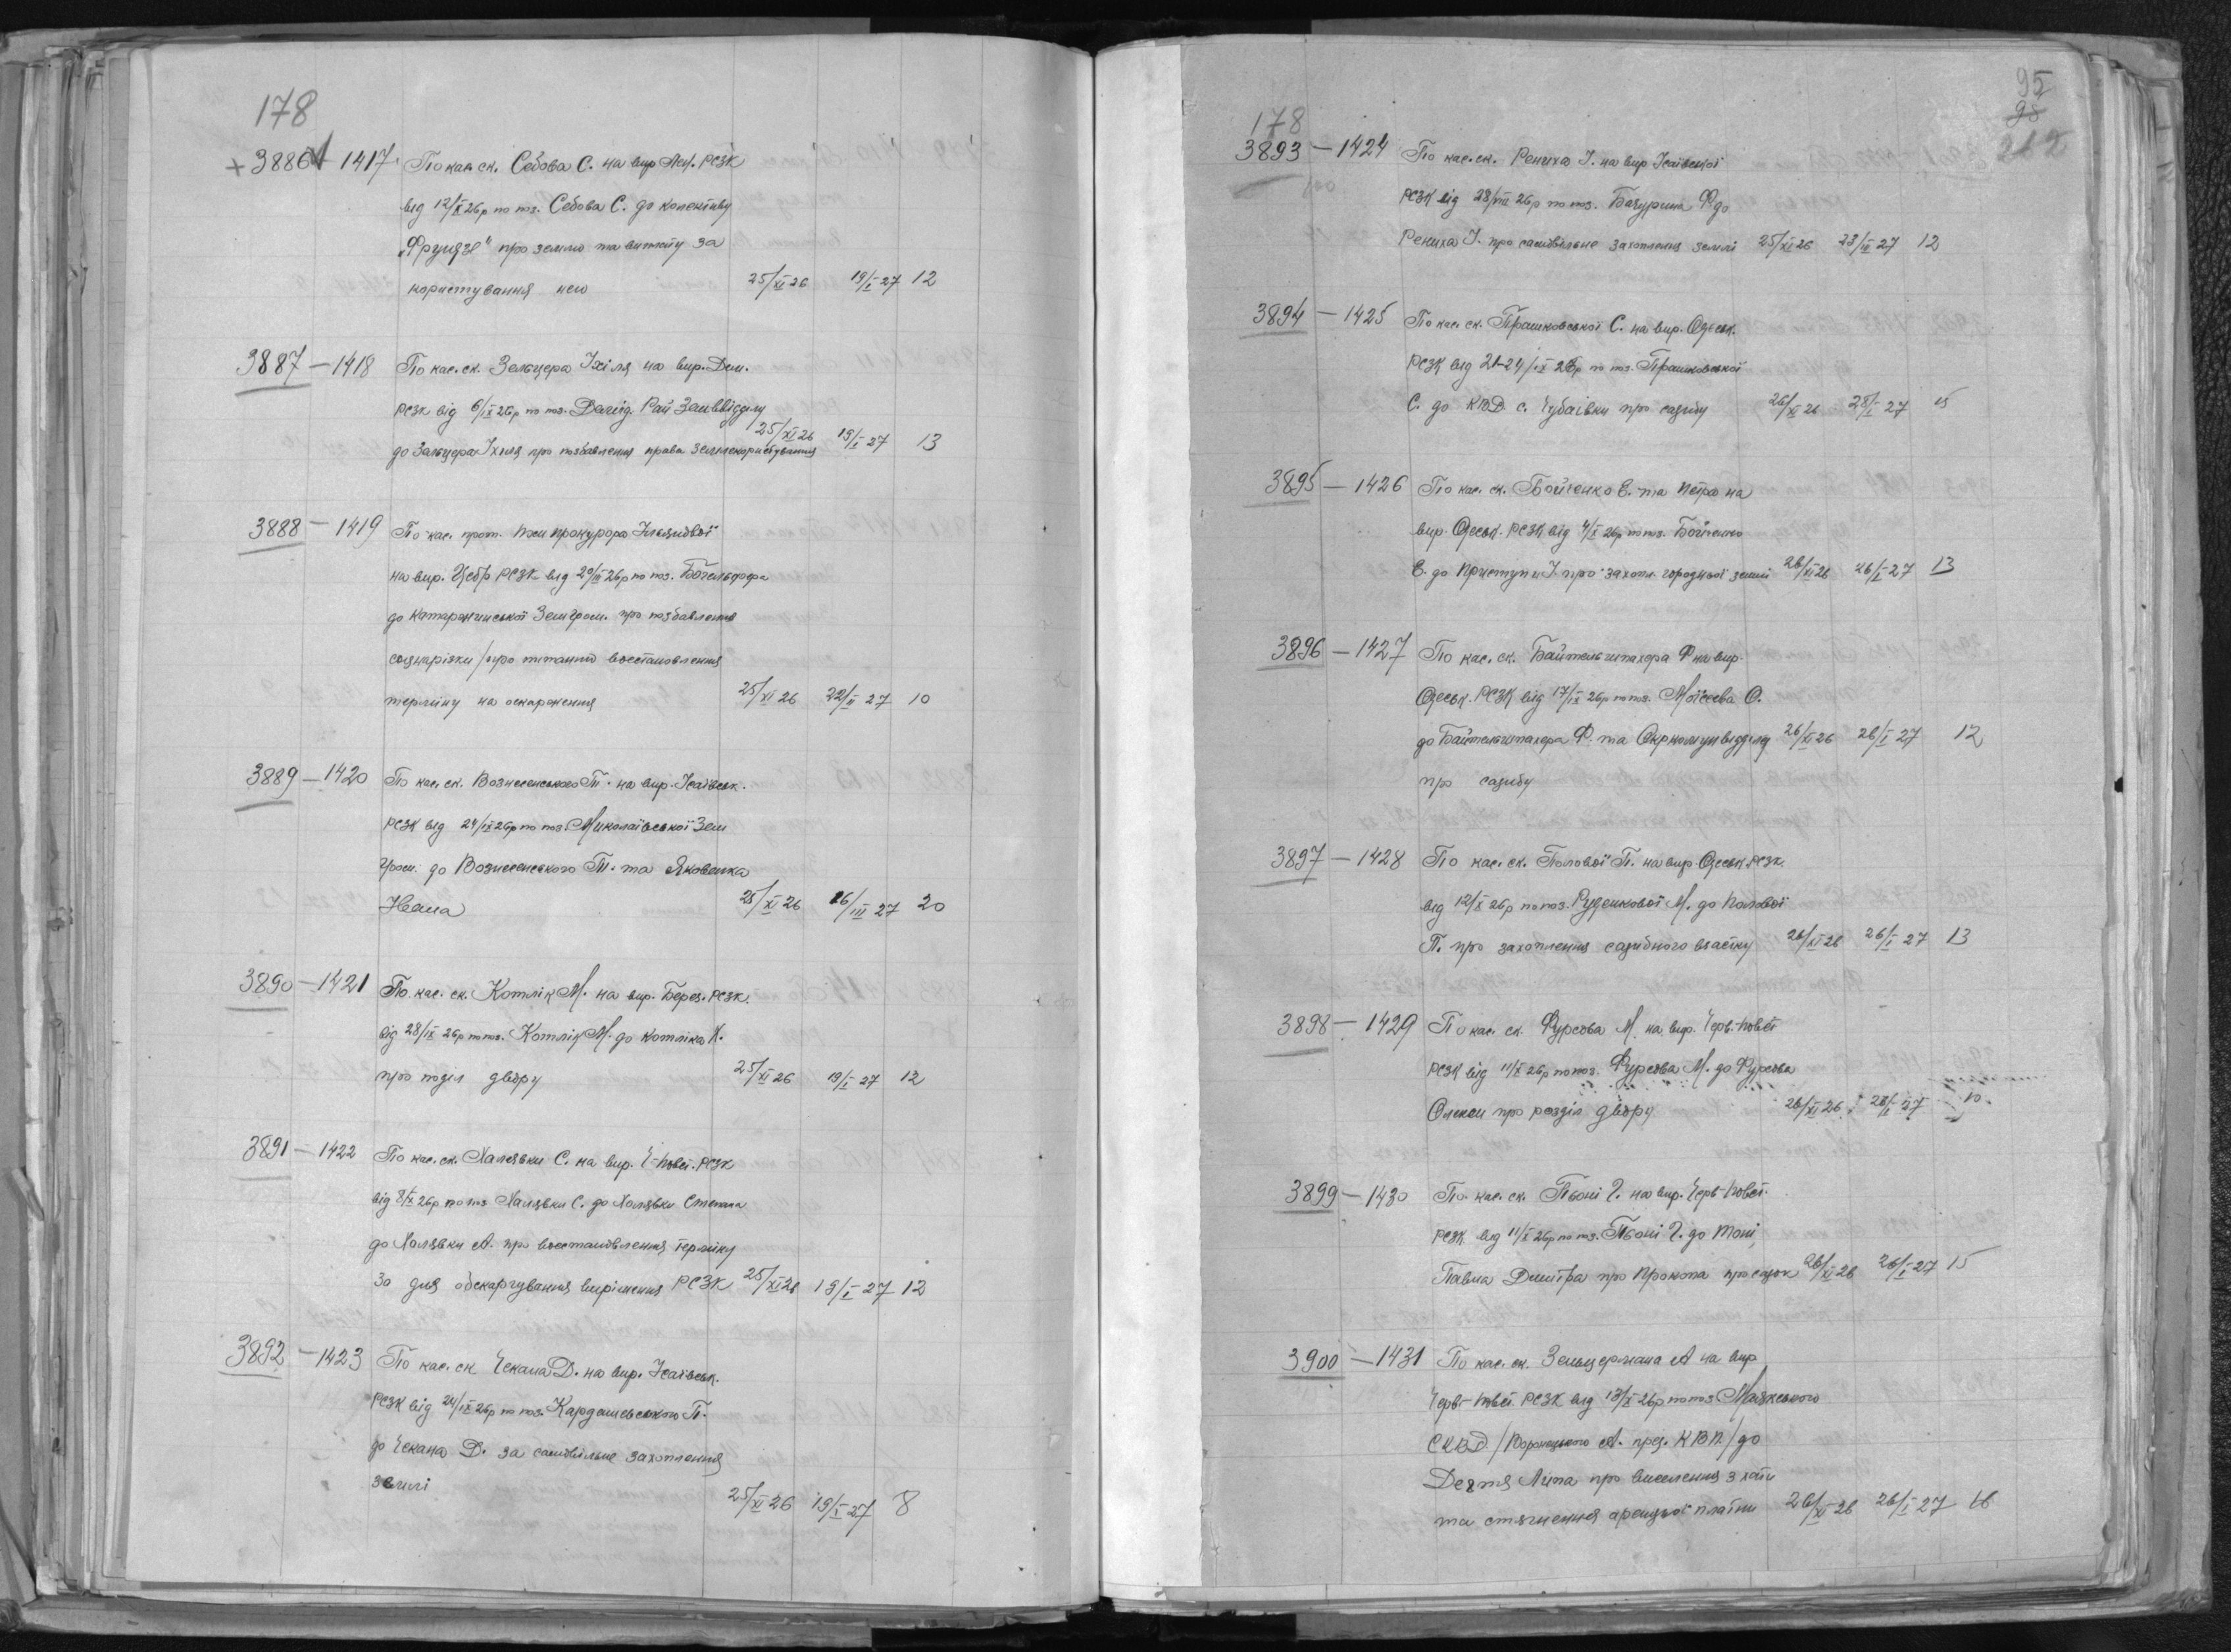 178
+ 3886 1417. По кас. ск. Сєдова С. на вир. Лен. РСЗК
від 12/X 26р по поз. Сєдова С. до колективу
„Фрунзе" про землю та виплату за
користування нею 25/XI 26 19/I 27 12
3887 — 1418 По кас. ск. Зельцера Іхіля на вир.
РСЗК від 6/IX 26р по поз. Рай Земвідділу
до Зельцера Іхиля про позбавлення права землекористування 25/XI 26 19/I 27 13
3888 — 1419 По кас. прот. Пом прокурора
на вир. Цебр РСЗК від 20/III 26р по поз.
до Катаржинської Земгром. про позбавлення
/про питанню восстановлення
терміну на оскарження 25/XI 26 22/II 27 10
3889 — 1420 По кас. ск. Вознесенського Т. на вир. Ісаївськ.
РСЗК від 24/IX 26р по поз. Миколаївської Зем
Гром. до Вознесенського Т. та Яковенка
Івана 25/XI 26 26/III 27 20
3890 — 1421 По кас. ск. Котлік М. на вир. Берез. РСЗК.
від 28/IX 26р по поз. Котлік М. до Котліка К.
про поділ двору 25/XI 26 19/I 27 12
3891 — 1422 По кас. ск. Халявки С. на вир. Ч-Повст. РСЗК
від 8/X 26р по поз Халявки С. до Халявки Степана
до Халявки А. про восстановлення терміну
За для обскаргування вирішення РСЗК 25/XI 26 19/I 27 12
3892 — 1423 По кас. ск Чекана Д. на вир. Ісаївськ.
РСЗК від 24/IX 26р по поз. Кардашевського П.
до Чекана Д. за самовільне захоплення
землі 25/XI 26 19/I 27 8
95
98
212
178
3893 — 1424 По кас. ск. Рениха І. на вир Ісаївської
РСЗК від 28/VIII 26р по поз. Бачурина Ф до
Рениха І. про самовільне захоплення землі 25/XI 26 23/III 27 12
3894 — 1425 По кас. ск. Прашковської С. на вир. Одеськ.
РСЗК від 21-24/IX 26р по поз. Прашковської
С. до КВД с. Чубаївки про садибу 26/XI 26 28/I 27 15
3895 — 1426 По кас. ск. Бойченко Є. та Петра на
вир. Одеськ. РСЗК від 4/X 26р по поз. Бойченко
Є. до Приступи І. про захопл. городньої землі 26/XI 26 26/I 27 13
3896 — 1427 По кас. ск. Байтельшпахера Ф на вир.
Одеськ. РСЗК від 17/IX 26р по поз. Моїсєєва О.
до Байтельшпахера Ф. та Окркомунвідділу 26/XI 26 26/I 27 12
про садибу
3897 — 1428 По кас. ск. Полової П. на вир. Одеськ. РСЗК.
від 12/X 26р по поз. Руденкової М. до Полової
П. про захоплення садибного вчастку 26/XI 26 26/I 27 13
3898 — 1429 По кас. ск. Фурсова М. на вир. Черв.-Повст
РСЗК від 11/X 26р по поз. Фурсова М. до Фурсова
Олекси про розділ двору 26/XI 26 26/I 27 10
3899 — 1430 По кас. ск. Г. на вир. Черв-Повст.
РСЗК від 11/X 26р по поз. Г. до
Павла Дмитра про Прокопа 26/XI 26 26/I 27 15
3900 — 1431 По кас. ск. Зельцермана А на вир
Черв-Повст. РСЗК від 13/X 26р по поз Маякського
СКВД /Воронецького А. през. КВП/ до
Липа про виселення з хати
та стягнення арендної платні 26/XI 26 26/I 27 16